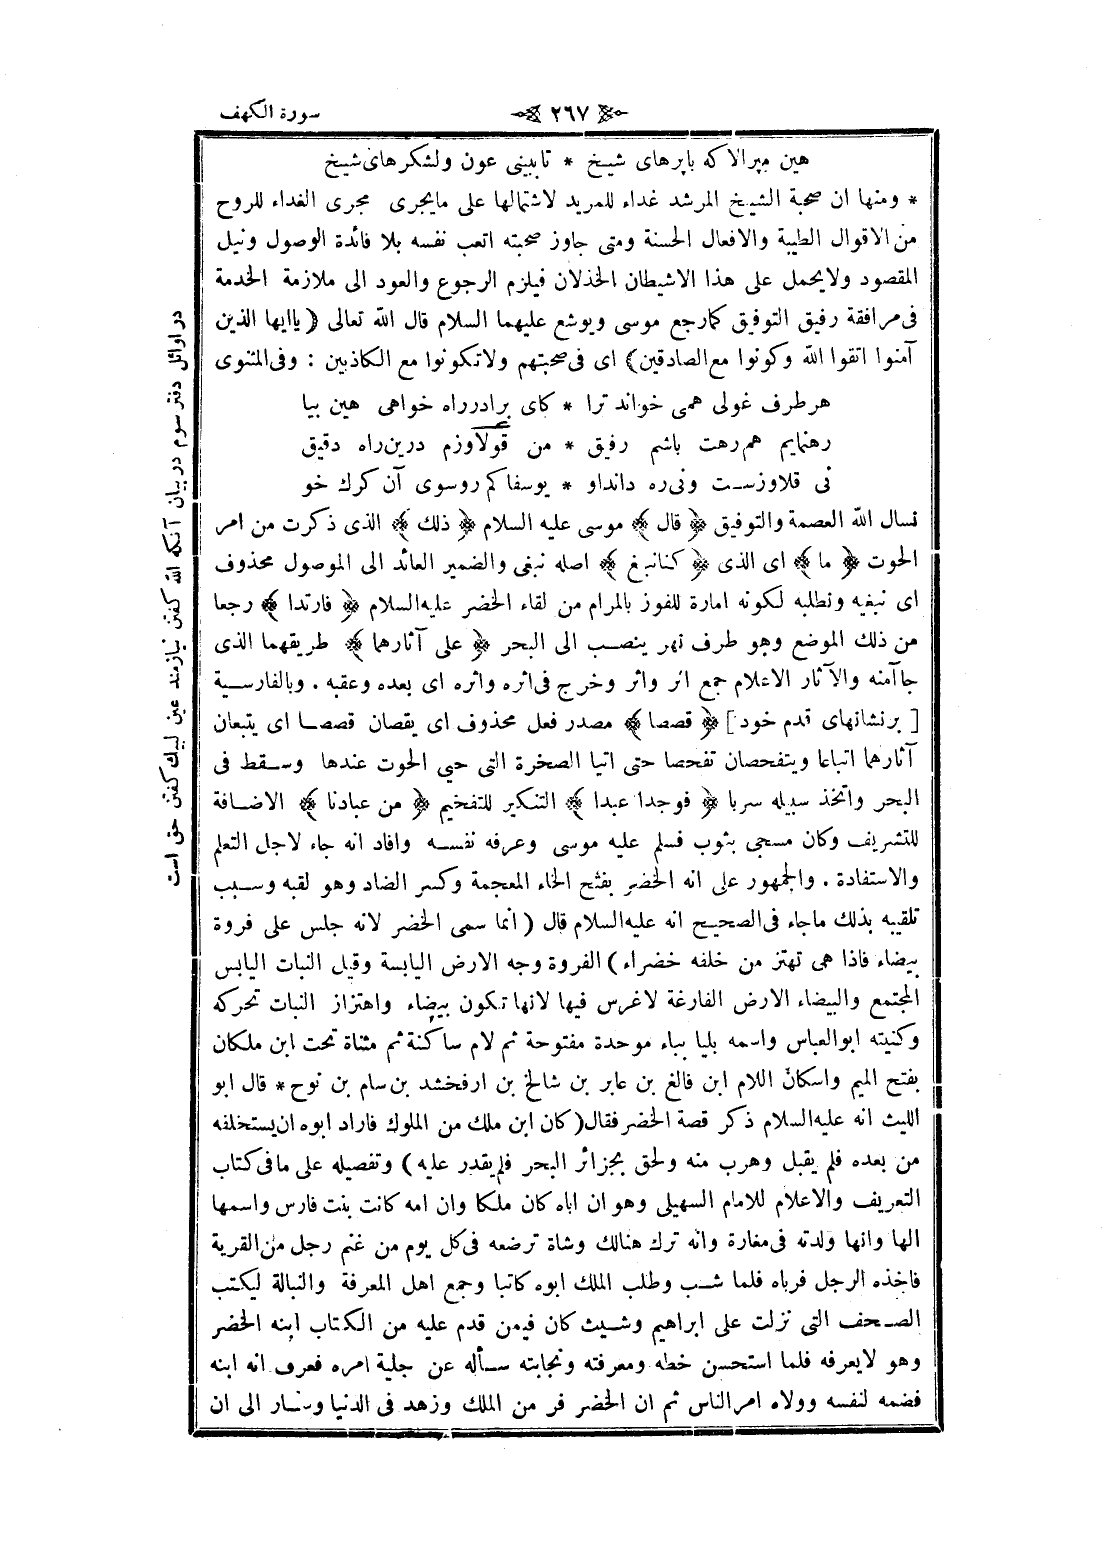 سورة الكهف
٢٦٧
هين مپر الا كه باپرهاى شيخ * تا ببينى عون ولشكرهاى شيخ
* ومنها ان صحبة الشيخ المرشد غداء للمريد لاشتمالها على مايجرى مجرى الغداء للروح
من الاقوال الطيبة والافعال الحسنة ومتى جاوز صحبته اتعب نفسه بلا فائدة الوصول ونيل
المقصود ولايحمل على هذا الاشيطان الخذلان فيلزم الرجوع والعود الى ملازمة الخدمة
فى مرافقة رفيق التوفيق كمارجع موسى ويوشع عليهما السلام قال الله تعالى ( ياايها الذين
آمنوا اتقوا الله وكونوا مع الصادقين ) اى فى صحبتهم ولاتكونوا مع الكاذبين : وفى المثنوى
هر طرف غولى همى خواند ترا * كاى برادر راه خواهى هين بيا
رهنمايم هم رهت باشم رفيق * من قولاوزم درين راه دقيق
نى قلاوزست ونى ره دانداو * يوسفا كم روسوى آن كرك خو
نسال الله العصمة والتوفيق ﴿ قال ﴾ موسى عليه السلام ﴿ ذلك ﴾ الذى ذكرت من امر
الحوت ﴿ ما ﴾ اى الذى ﴿ كنانبغ ﴾ اصله نبغى والضمير العائد الى الموصول محذوف
اى نبغيه ونطلبه لكونه امارة للفوز بالمرام من لقاء الخضر عليه السلام ﴿ فارتدا ﴾ رجعا
من ذلك الموضع وهو طرف نهر ينصب الى البحر ﴿ على آثارهما ﴾ طريقهما الذى
جاآمنه والآثار الاعلام جمع اثر واثر وخرج فى اثره واثره اى بعده وعقبه . وبالفارسية
[ برنشانهاى قدم خود ] ﴿ قصصا ﴾ مصدر فعل محذوف اى يقصان قصصا اى يتبعان
آثارهما اتباعا ويتفحصان تفحصا حتى اتيا الصخرة التى حيي الحوت عندها وسقط فى
البحر واتخذ سبيله سربا ﴿ فوجدا عبدا ﴾ التنكير للتفخيم ﴿ من عبادنا ﴾ الاضافة
للتشريف وكان مسجى بثوب فسلم عليه موسى وعرفه نفسه وافاد انه جاء لاجل التعلم
والاستفادة . والجمهور على انه الخضر بفتح الخاء المعجمة وكسر الضاد وهو لقبه وسبب
تلقيبه بذلك ماجاء فى الصحيح انه عليه السلام قال ( انما سمى الخضر لانه جلس على فروة
بيضاء فاذا هى تهتز من خلفه خضراء ) الفروة وجه الارض اليابسة وقيل النبات اليابس
المجتمع والبيضاء الارض الفارغة لاغرس فيها لانها تكون بيضاء واهتزاز النبات تحركه
وكنيته ابوالعباس واسمه بليا بباء موحدة مفتوحة ثم لام ساكنة ثم مثناة تحت ابن ملكان
بفتح الميم واسكان اللام ابن فالغ بن عابر بن شالخ بن ارفخشد بن سام بن نوح * قال ابو
الليث انه عليه السلام ذكر قصة الخضر فقال ( كان ابن ملك من الملوك فاراد ابوه ان يستخلفه
من بعده فلم يقبل وهرب منه ولحق بجزائر البحر فلم يقدر عليه ) وتفصيله على مافى كتاب
التعريف والاعلام للامام السهيلى وهو ان اباه كان ملكا وان امه كانت بنت فارس واسمها
الها وانها ولدته فى مغارة وانه ترك هنالك وشاة ترضعه فى كل يوم من غنم رجل من القرية
فاخذه الرجل فرباه فلما شب وطلب الملك ابوه كاتبا وجمع اهل المعرفة والنبالة ليكتب
الصحف التى نزلت على ابراهيم وشيث كان فيمن قدم عليه من الكتاب ابنه الخضر
وهو لايعرفه فلما استحسن خطه ومعرفته ونجابته سأله عن جلية امره فعرف انه ابنه
فضمه لنفسه وولاه امر الناس ثم ان الخضر فر من الملك وزهد فى الدنيا وسار الى ان
در اوائل دفتر سوم در بيان آنكه الله كفتن نيازمند عين لبيك كفتن حق است